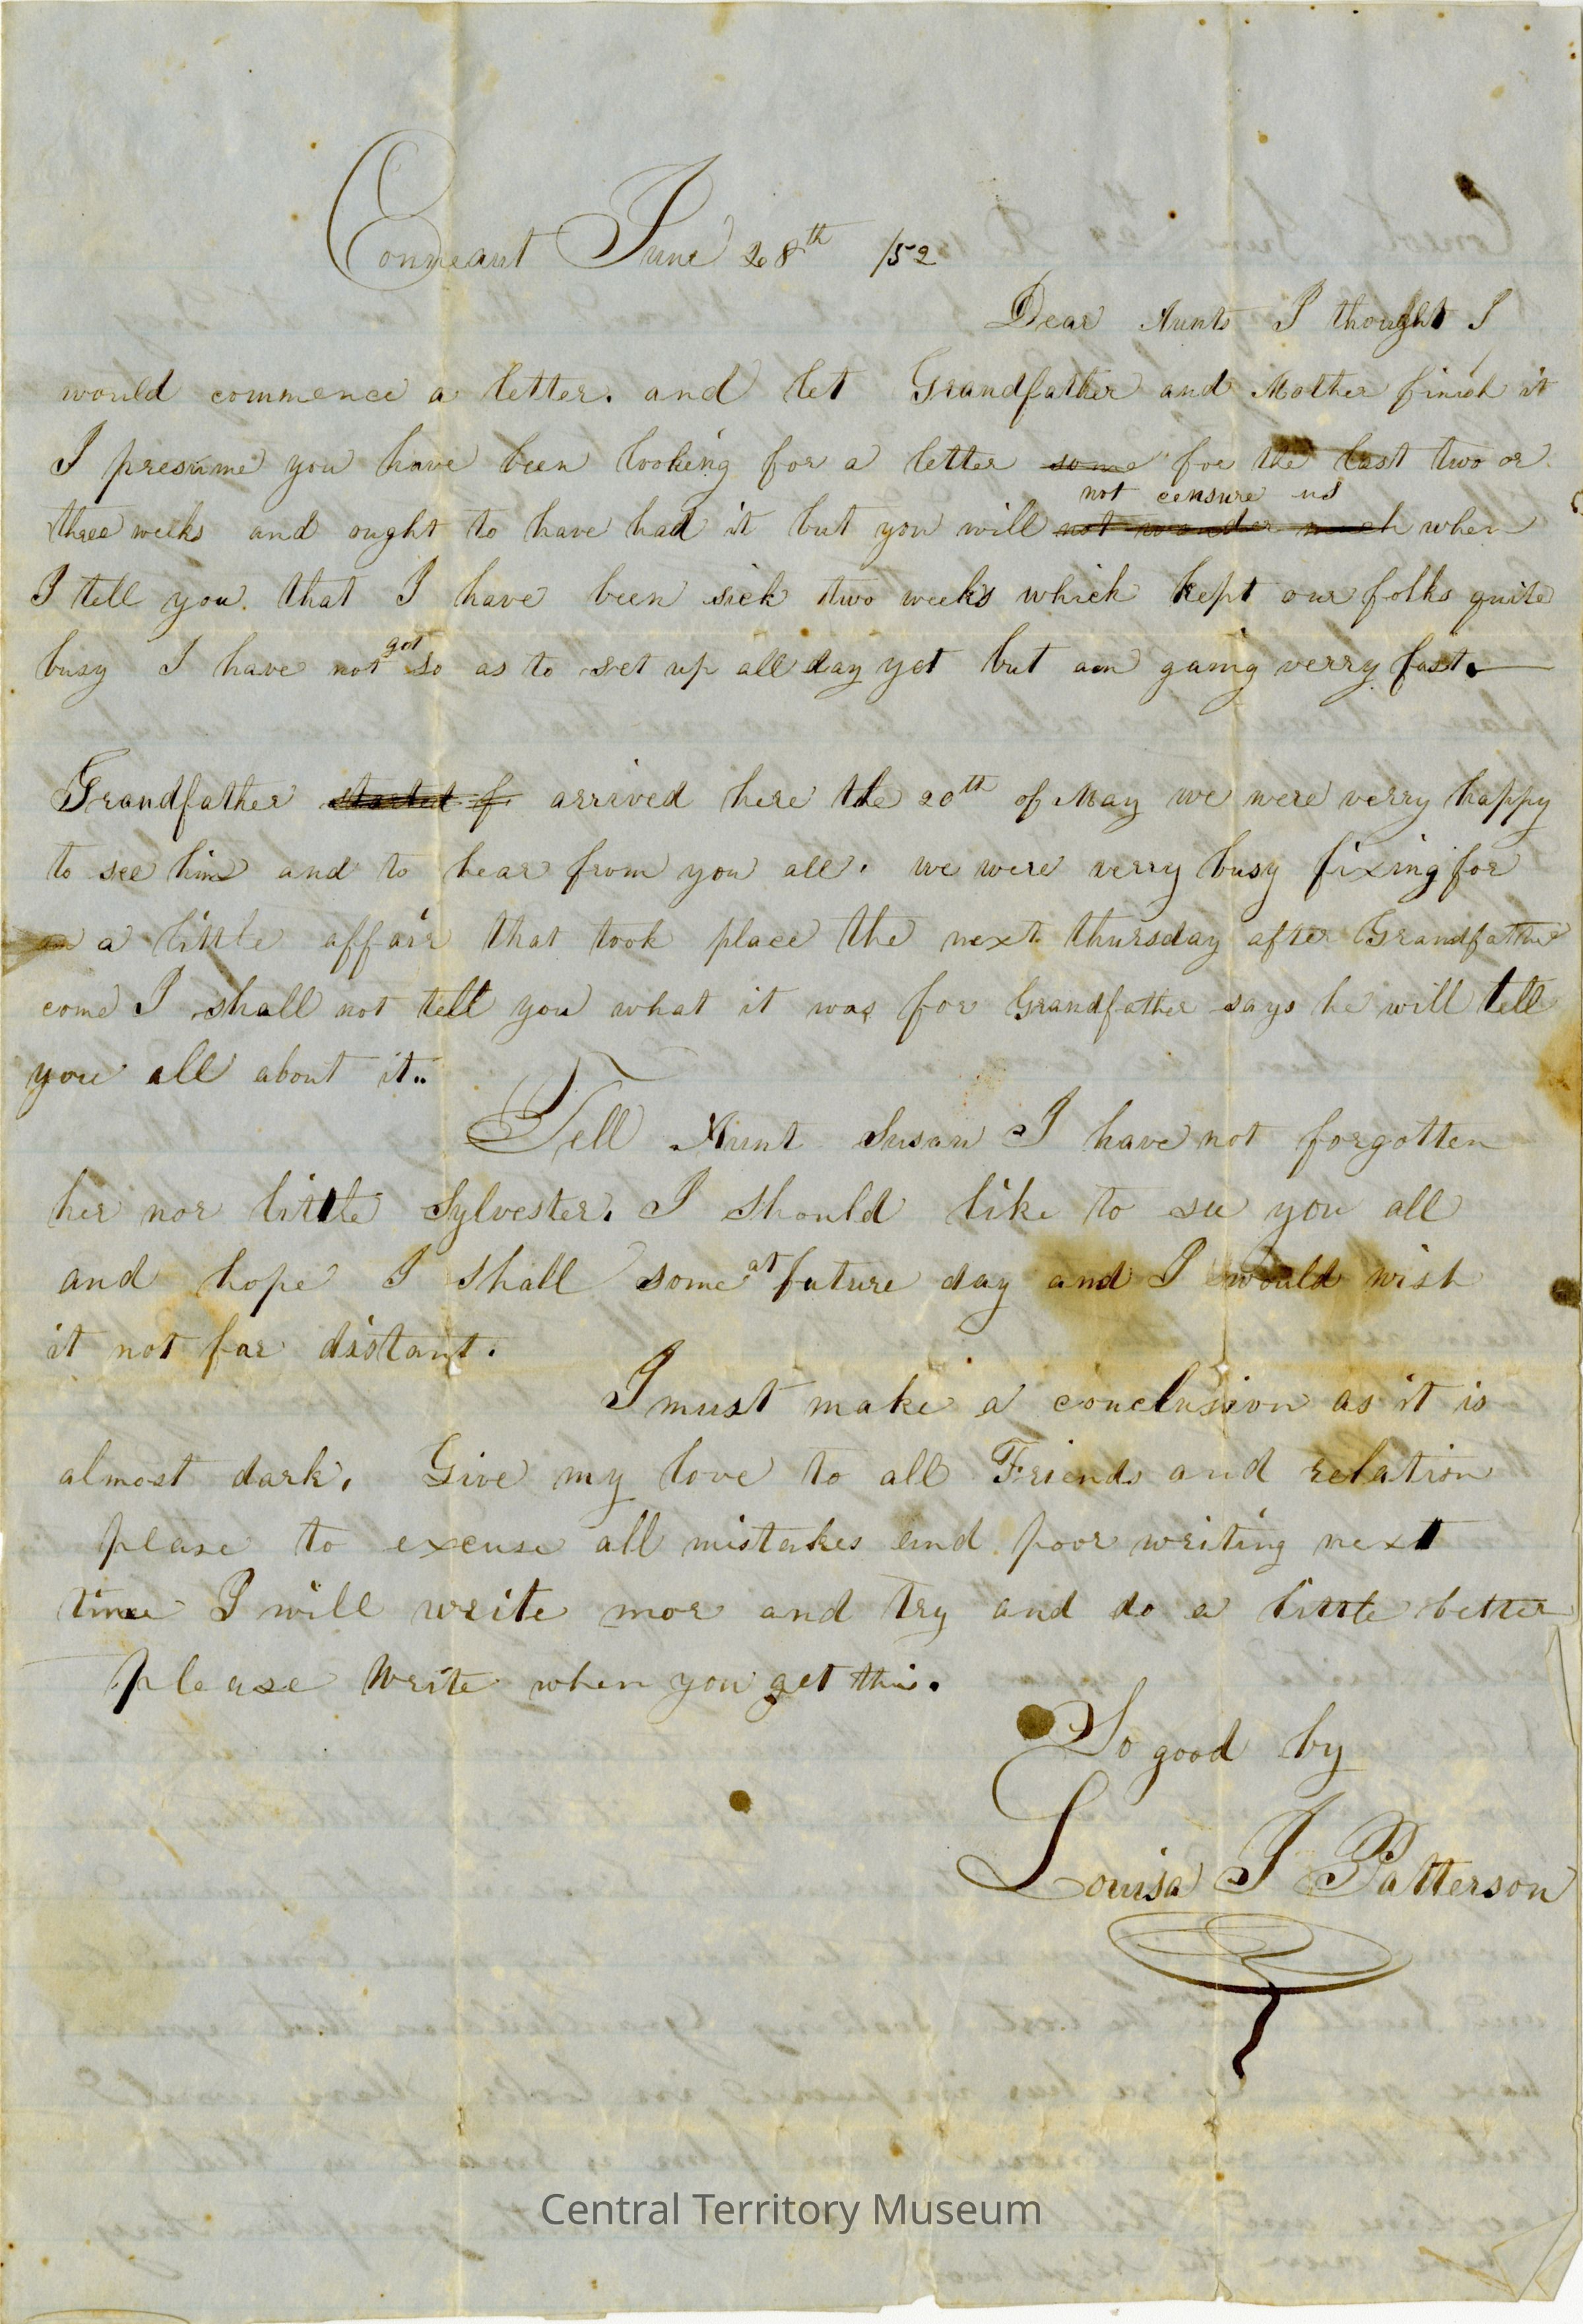 Conneaut June 28th /52
Dear Aunts I thought I
would commence a letter. and let Grandfather and Mother finish it
I presume you have been looking for a letter some for the last two or
not censure us
three weeks and ought to have had it but you will not wonder much when
I tell you. that I have been sick two weeks which kept our folks quite
got
busy I have not so as to set up all day yet but am gaing verry fast.
Grandfather started f arrived here the 20th of May we were verry happy
to see him and to hear from you all. we were verry busy fixing for
an a little affair that took place the next thursday after Grandfather
come I shall not tell you what it was for Grandfather says he will tell
you all about it..
Tell Aunt Susan I have not forgotten
her nor little Sylvester. I should like to see you all
at
and hope I shall some future day and I would wish
it not far distant.
I must make a conclusion as it is
almost dark. Give my love to all Friends and relation
please to excuse all mistakes and poor writing next
time I will write mor and try and do a little better
please write when you get this.
So good by
Louisa J Patterson
Central Territory Museum